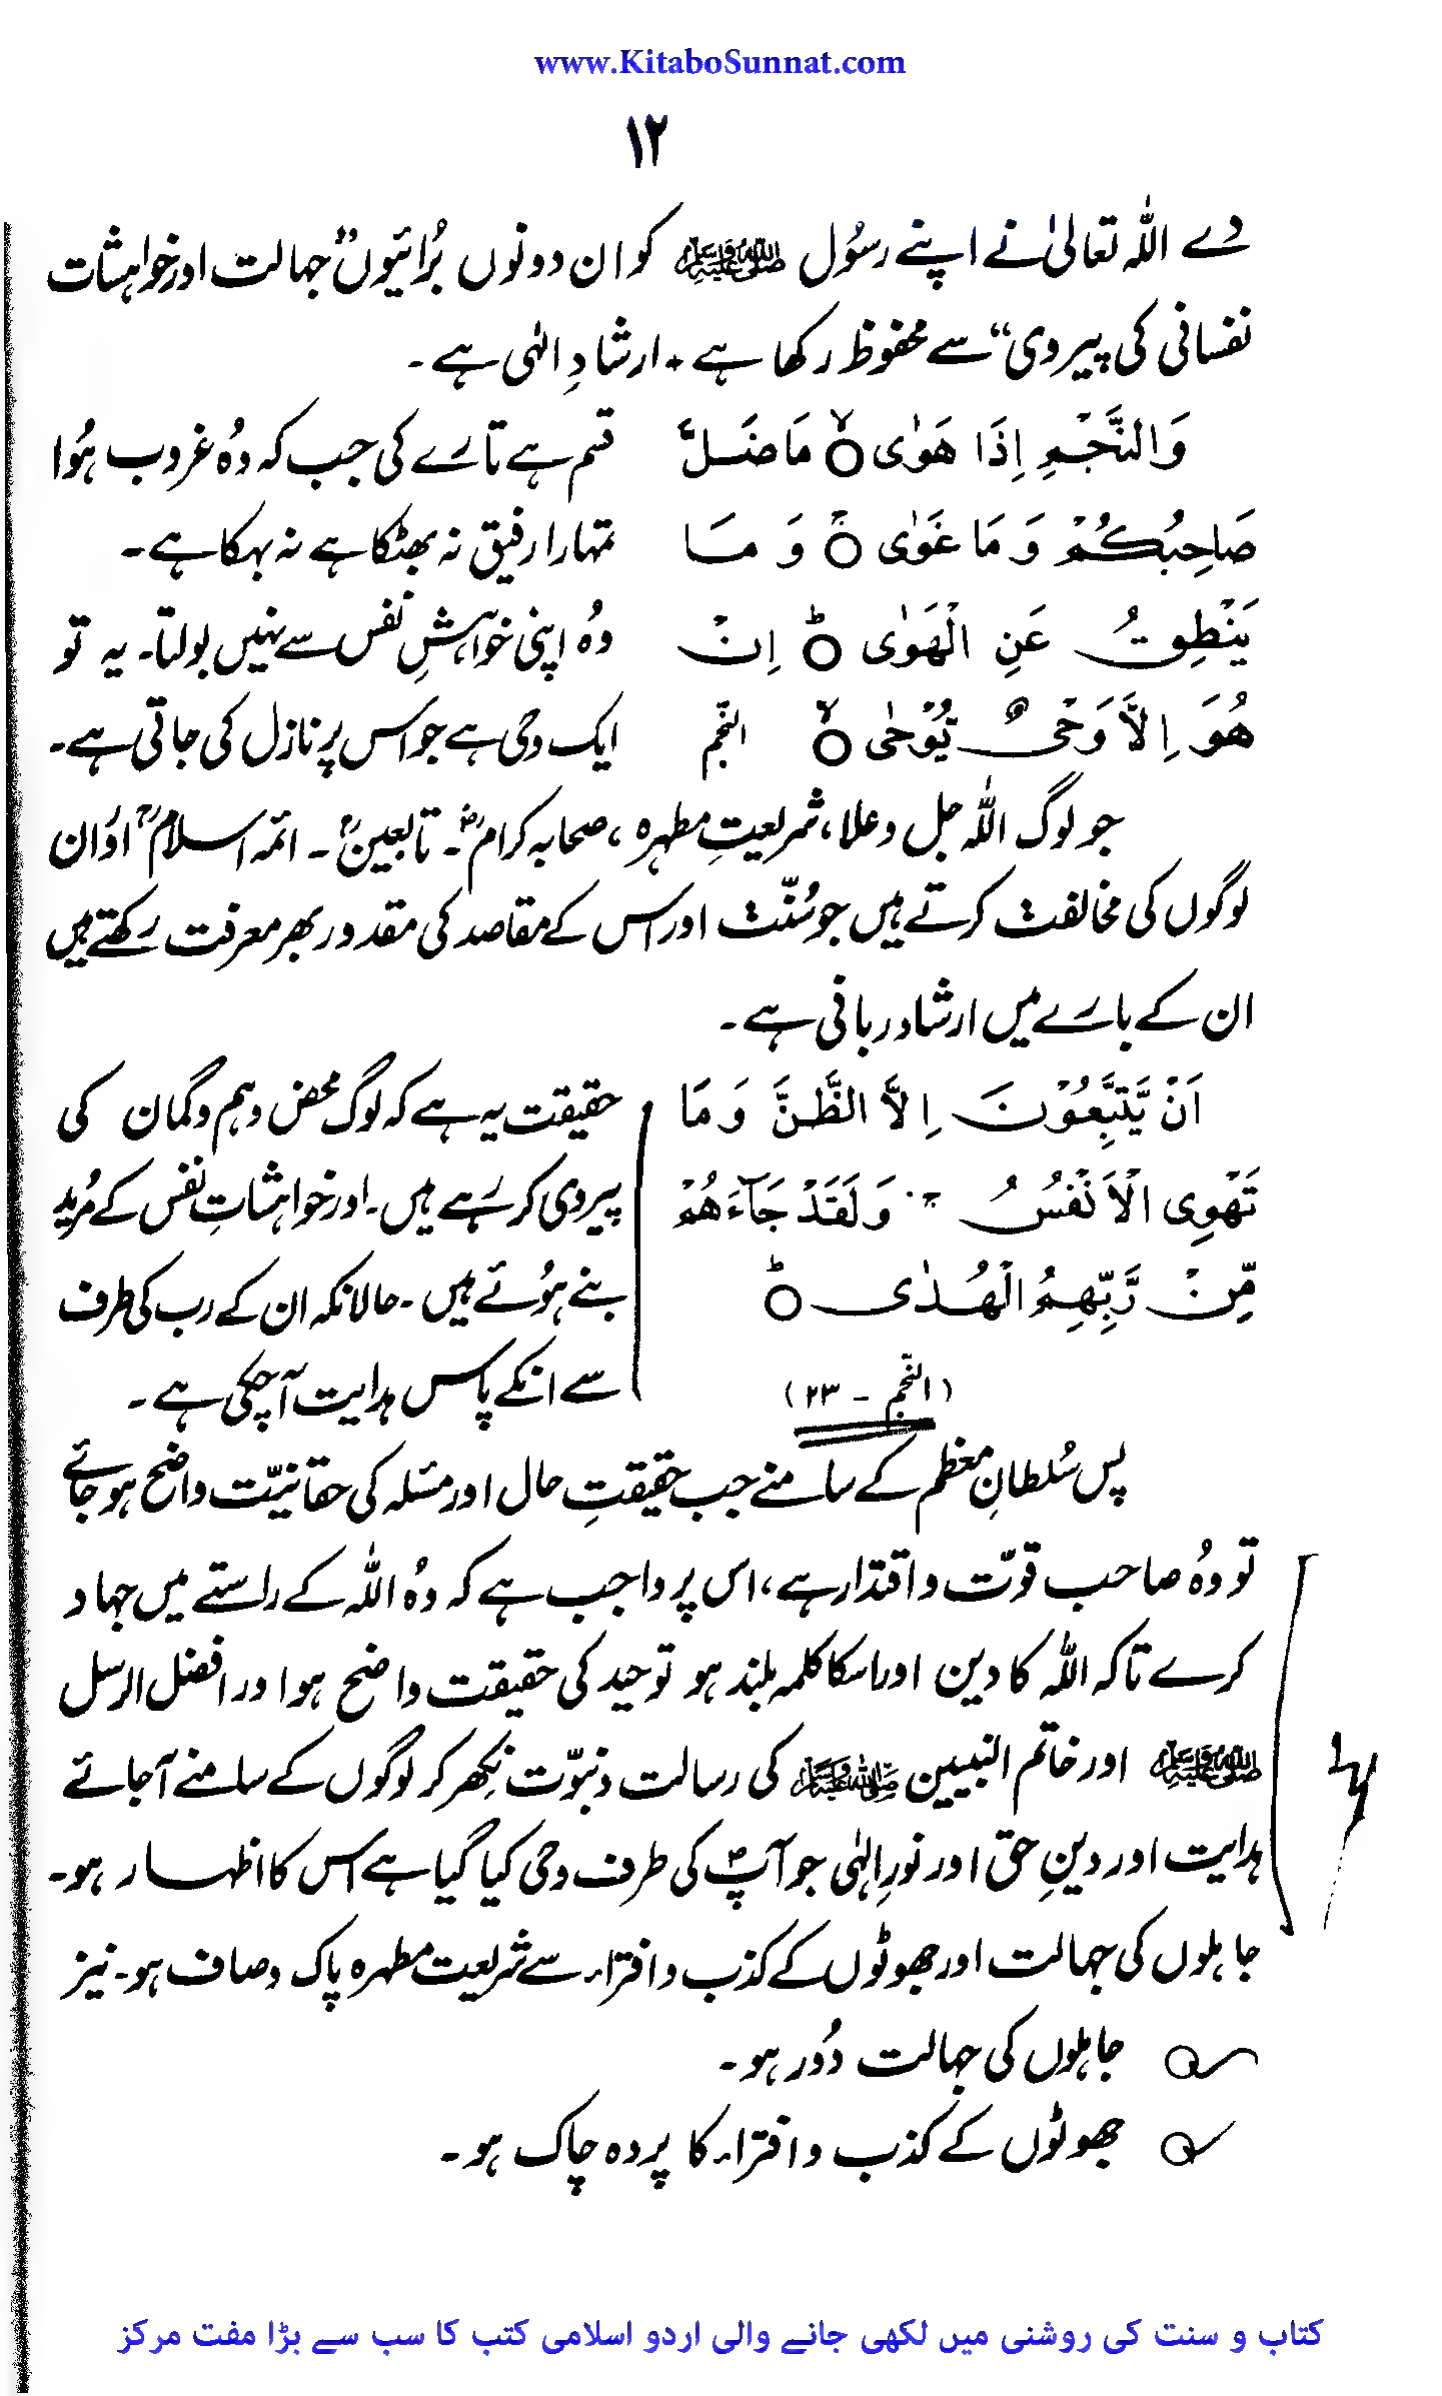 www.KitaboSunnat.com
۱۲
دے اللہ تعالیٰ نے اپنے رسُول ﷺ کو ان دونوں بُرائیوں ”جہالت اور خواہشات
نفسانی کی پیروی“ سے محفوظ رکھا ہے۔ ارشادِ الٰہی ہے۔
وَالنَّجْمِ اِذَا هَوٰى ۙ مَا ضَلَّ قسم ہے تارے کی جب کہ وُہ غروب ہُوا
صَاحِبُكُمْ وَمَا غَوٰى ۚ وَمَا تمہارا رفیق نہ بھٹکا ہے نہ بہکا ہے۔
يَنْطِقُ عَنِ الْهَوٰى ؕ اِنْ وُہ اپنی خواہشِ نفس سے نہیں بولتا۔ یہ تو
هُوَ اِلَّا وَحْىٌ يُّوْحٰى ۙ النجم ایک وحی ہے جو اس پر نازل کی جاتی ہے۔
جو لوگ اللہ جل وعلا، شریعتِ مطہرہ، صحابہ کرامؓ۔ تابعینؒ۔ ائمہ اسلامؒ اور ان
لوگوں کی مخالفت کرتے ہیں جو سُنّت اور اس کے مقاصد کی مقدور بھر معرفت رکھتے ہیں
ان کے بارے میں ارشاد ربانی ہے۔
اَنْ يَّتَّبِعُوْنَ اِلَّا الظَّنَّ وَمَا حقیقت یہ ہے کہ لوگ محض وہم و گمان کی
تَهْوِى الْاَنْفُسُ ۚ وَلَقَدْ جَآءَهُمْ پیروی کر رہے ہیں۔ اور خواہشاتِ نفس کے مُرید
مِّنْ رَّبِّهِمُ الْهُدٰى ؕ بنے ہُوئے ہیں۔ حالانکہ ان کے رب کی طرف
(النجم - ۲۳) سے انکے پاس ہدایت آ چکی ہے۔
پس سُلطانِ معظم کے سامنے جب حقیقتِ حال اور مسئلہ کی حقانیّت واضح ہو جائے
تو وُہ صاحب قوّت و اقتدار ہے، اس پر واجب ہے کہ وُہ اللہ کے راستے میں جہاد
کرے تاکہ اللہ کا دین اور اسکا کلمہ بلند ہو توحید کی حقیقت واضح ہو اور افضل الرسل
ﷺ اور خاتم النبیین ﷺ کی رسالت و نبوّت نِکھر کر لوگوں کے سامنے آجائے
ہدایت اور دینِ حق اور نورِ الٰہی جو آپؐ کی طرف وحی کیا گیا ہے اس کا اظہار ہو۔
جاہلوں کی جہالت اور جھوٹوں کے کذب و افتراء سے شریعت مطہرہ پاک و صاف ہو۔ نیز
جاہلوں کی جہالت دُور ہو۔
جھوٹوں کے کذب و افتراء کا پردہ چاک ہو۔
کتاب و سنت کی روشنی میں لکھی جانے والی اردو اسلامی کتب کا سب سے بڑا مفت مرکز